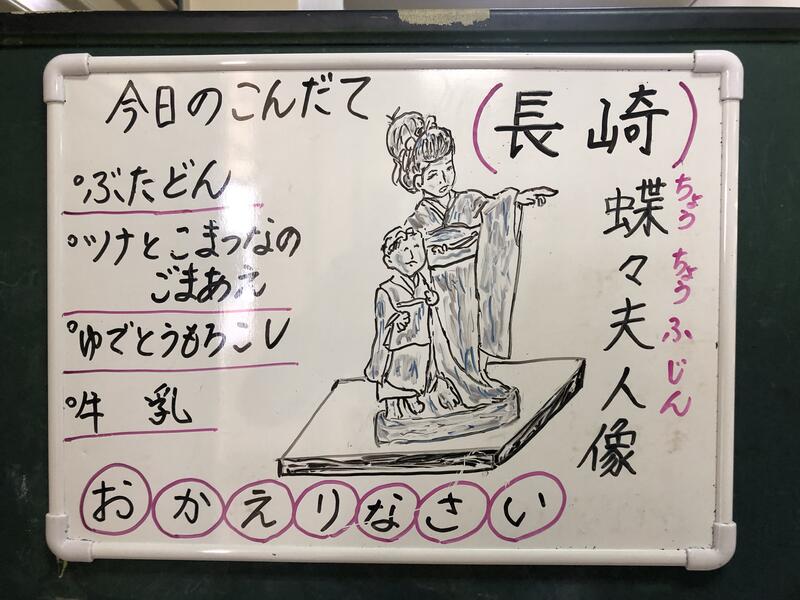 今日のこんだて
°ぶたどん
°ツナとこまつなの
ごまあえ
°ゆでとうもろこし
°牛 乳
(長崎)
蝶々夫人像
ちょうちょうふじん
おかえりなさい